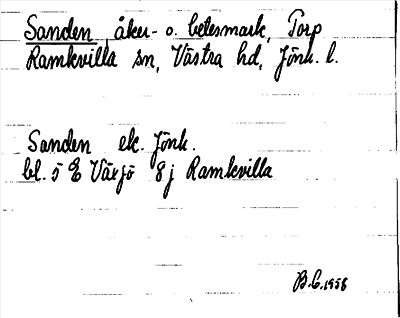 Sanden, åker- o. betesmark, Torp
Ramkvilla sn, Västra hd, Jönk. l.
Sanden ek. Jönk.
bl. 5 E Växjö 8 j Ramkvilla
B.C. 1958